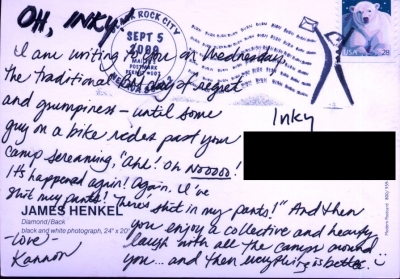 OH, INKY!
BLACK ROCK CITY
SEPT 5
2009
I am writing to you on Wednesday,
the traditional day of regret
and grumpiness – until some
guy on a bike rides past your
camp screaming, "Ahh! Oh NOOOOO!
It's happened again! Again. I've
shit my pants! There's shit in my pants!" And then
you enjoy a collective and hearty
laugh with all the camps around
you... and then everything is better. :)
-love-
Kannon
Inky
USA
28
JAMES HENKEL
Diamond/Back
black and white photograph, 24" x 20"